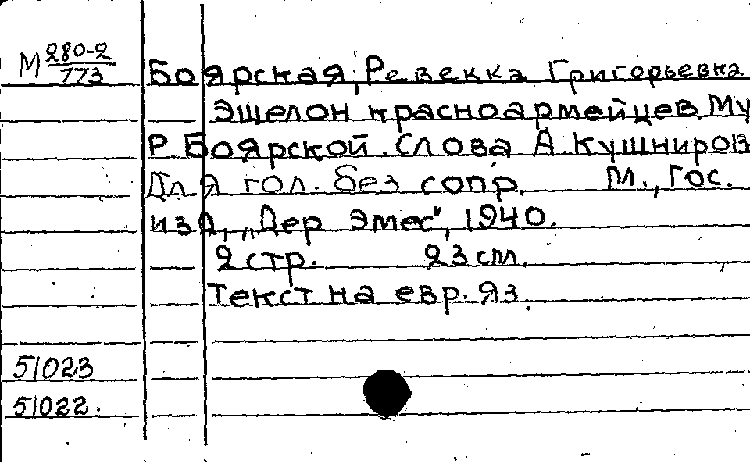 М 280-2
773
Боярская, Ревекка Григорьевна
Эшелон красноармейцев. Му
Р. Боярской. Слова А. Кушниров
Для гол. без сопр. М., Гос.
изд., „Дер Эмес", 1940.
2 стр. 23 см.
Текст на евр. яз.
51023
51022.